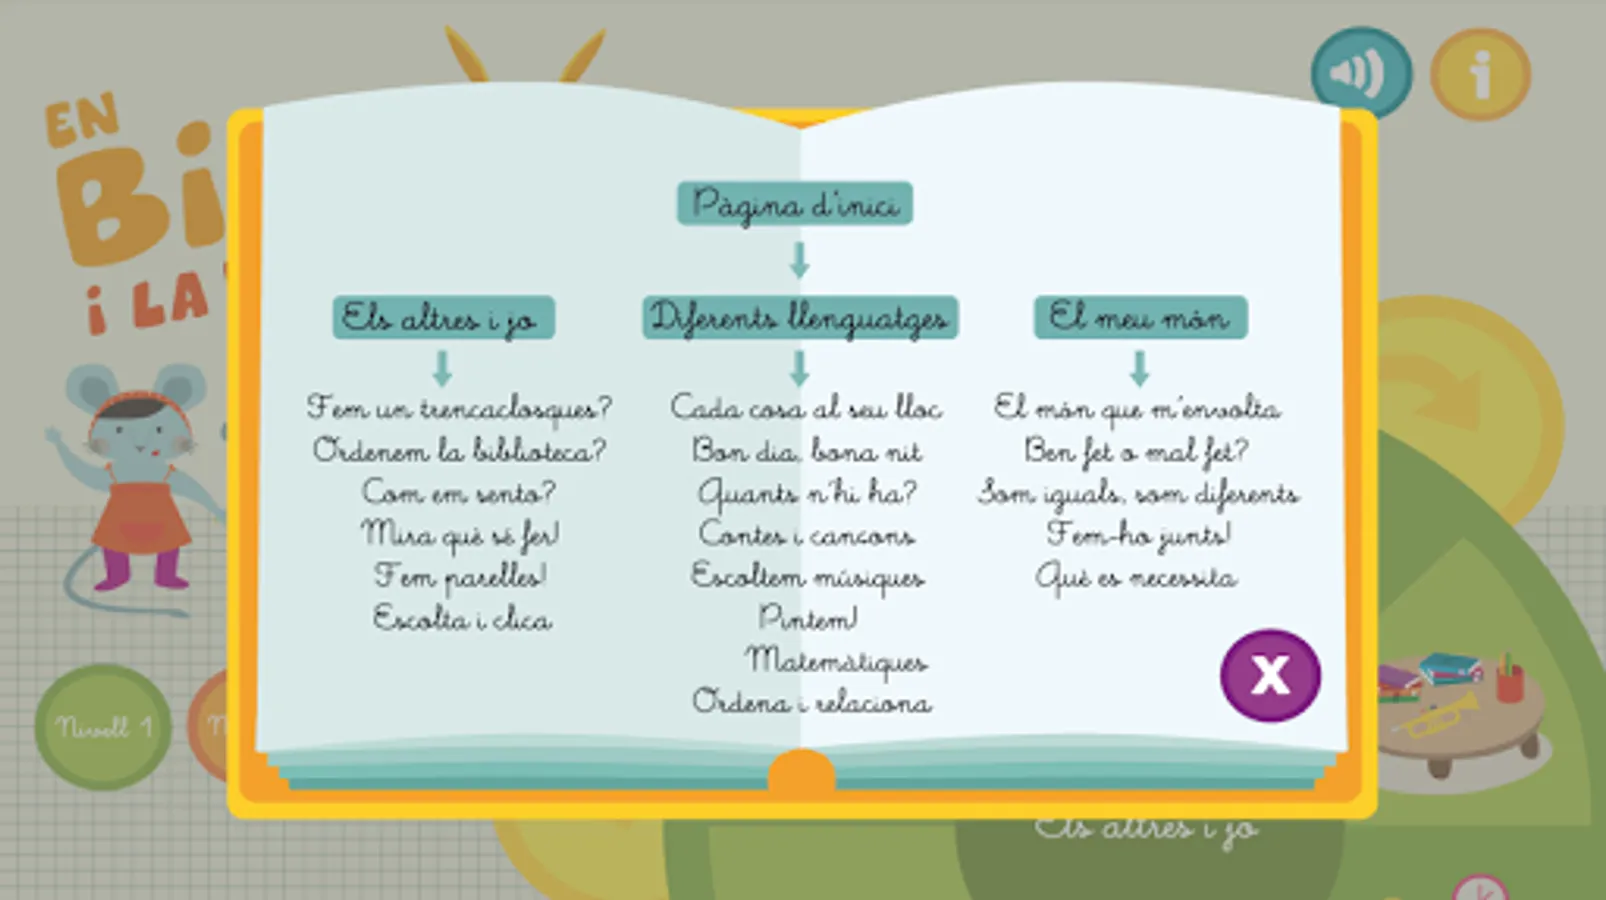 EN
Bi
i LA
Pàgina d'inici
Els altres i jo
Fem un trencaclosques?
Ordenem la biblioteca?
Com em sento?
Mira què sé fer!
Fem parelles!
Escolta i clica
Diferents llenguatges
Cada cosa al seu lloc
Bon dia, bona nit
Quants n'hi ha?
Contes i cançons
Escoltem músiques
Pintem!
Matemàtiques
Ordena i relaciona
El meu món
El món que m'envolta
Ben fet o mal fet?
Som iguals, som diferents
Fem-ho junts!
Què es necessita
X
i
Nivell 1
N
Els altres i jo